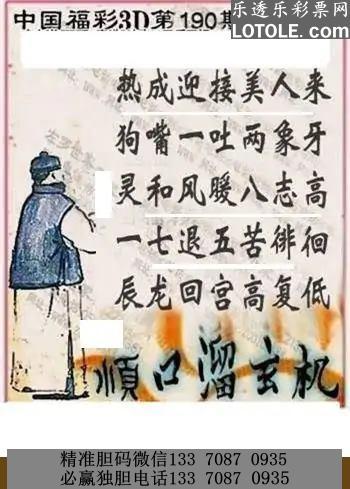 中国福彩3D第190期
乐透乐彩票网
LOTOLE.COM
热成迎接美人来
狗嘴一吐两象牙
灵和风暖八志高
一七退五苦徘徊
辰龙回宫高复低
顺口溜玄机
精准胆码微信133 7087 0935
必赢独胆电话133 7087 0935